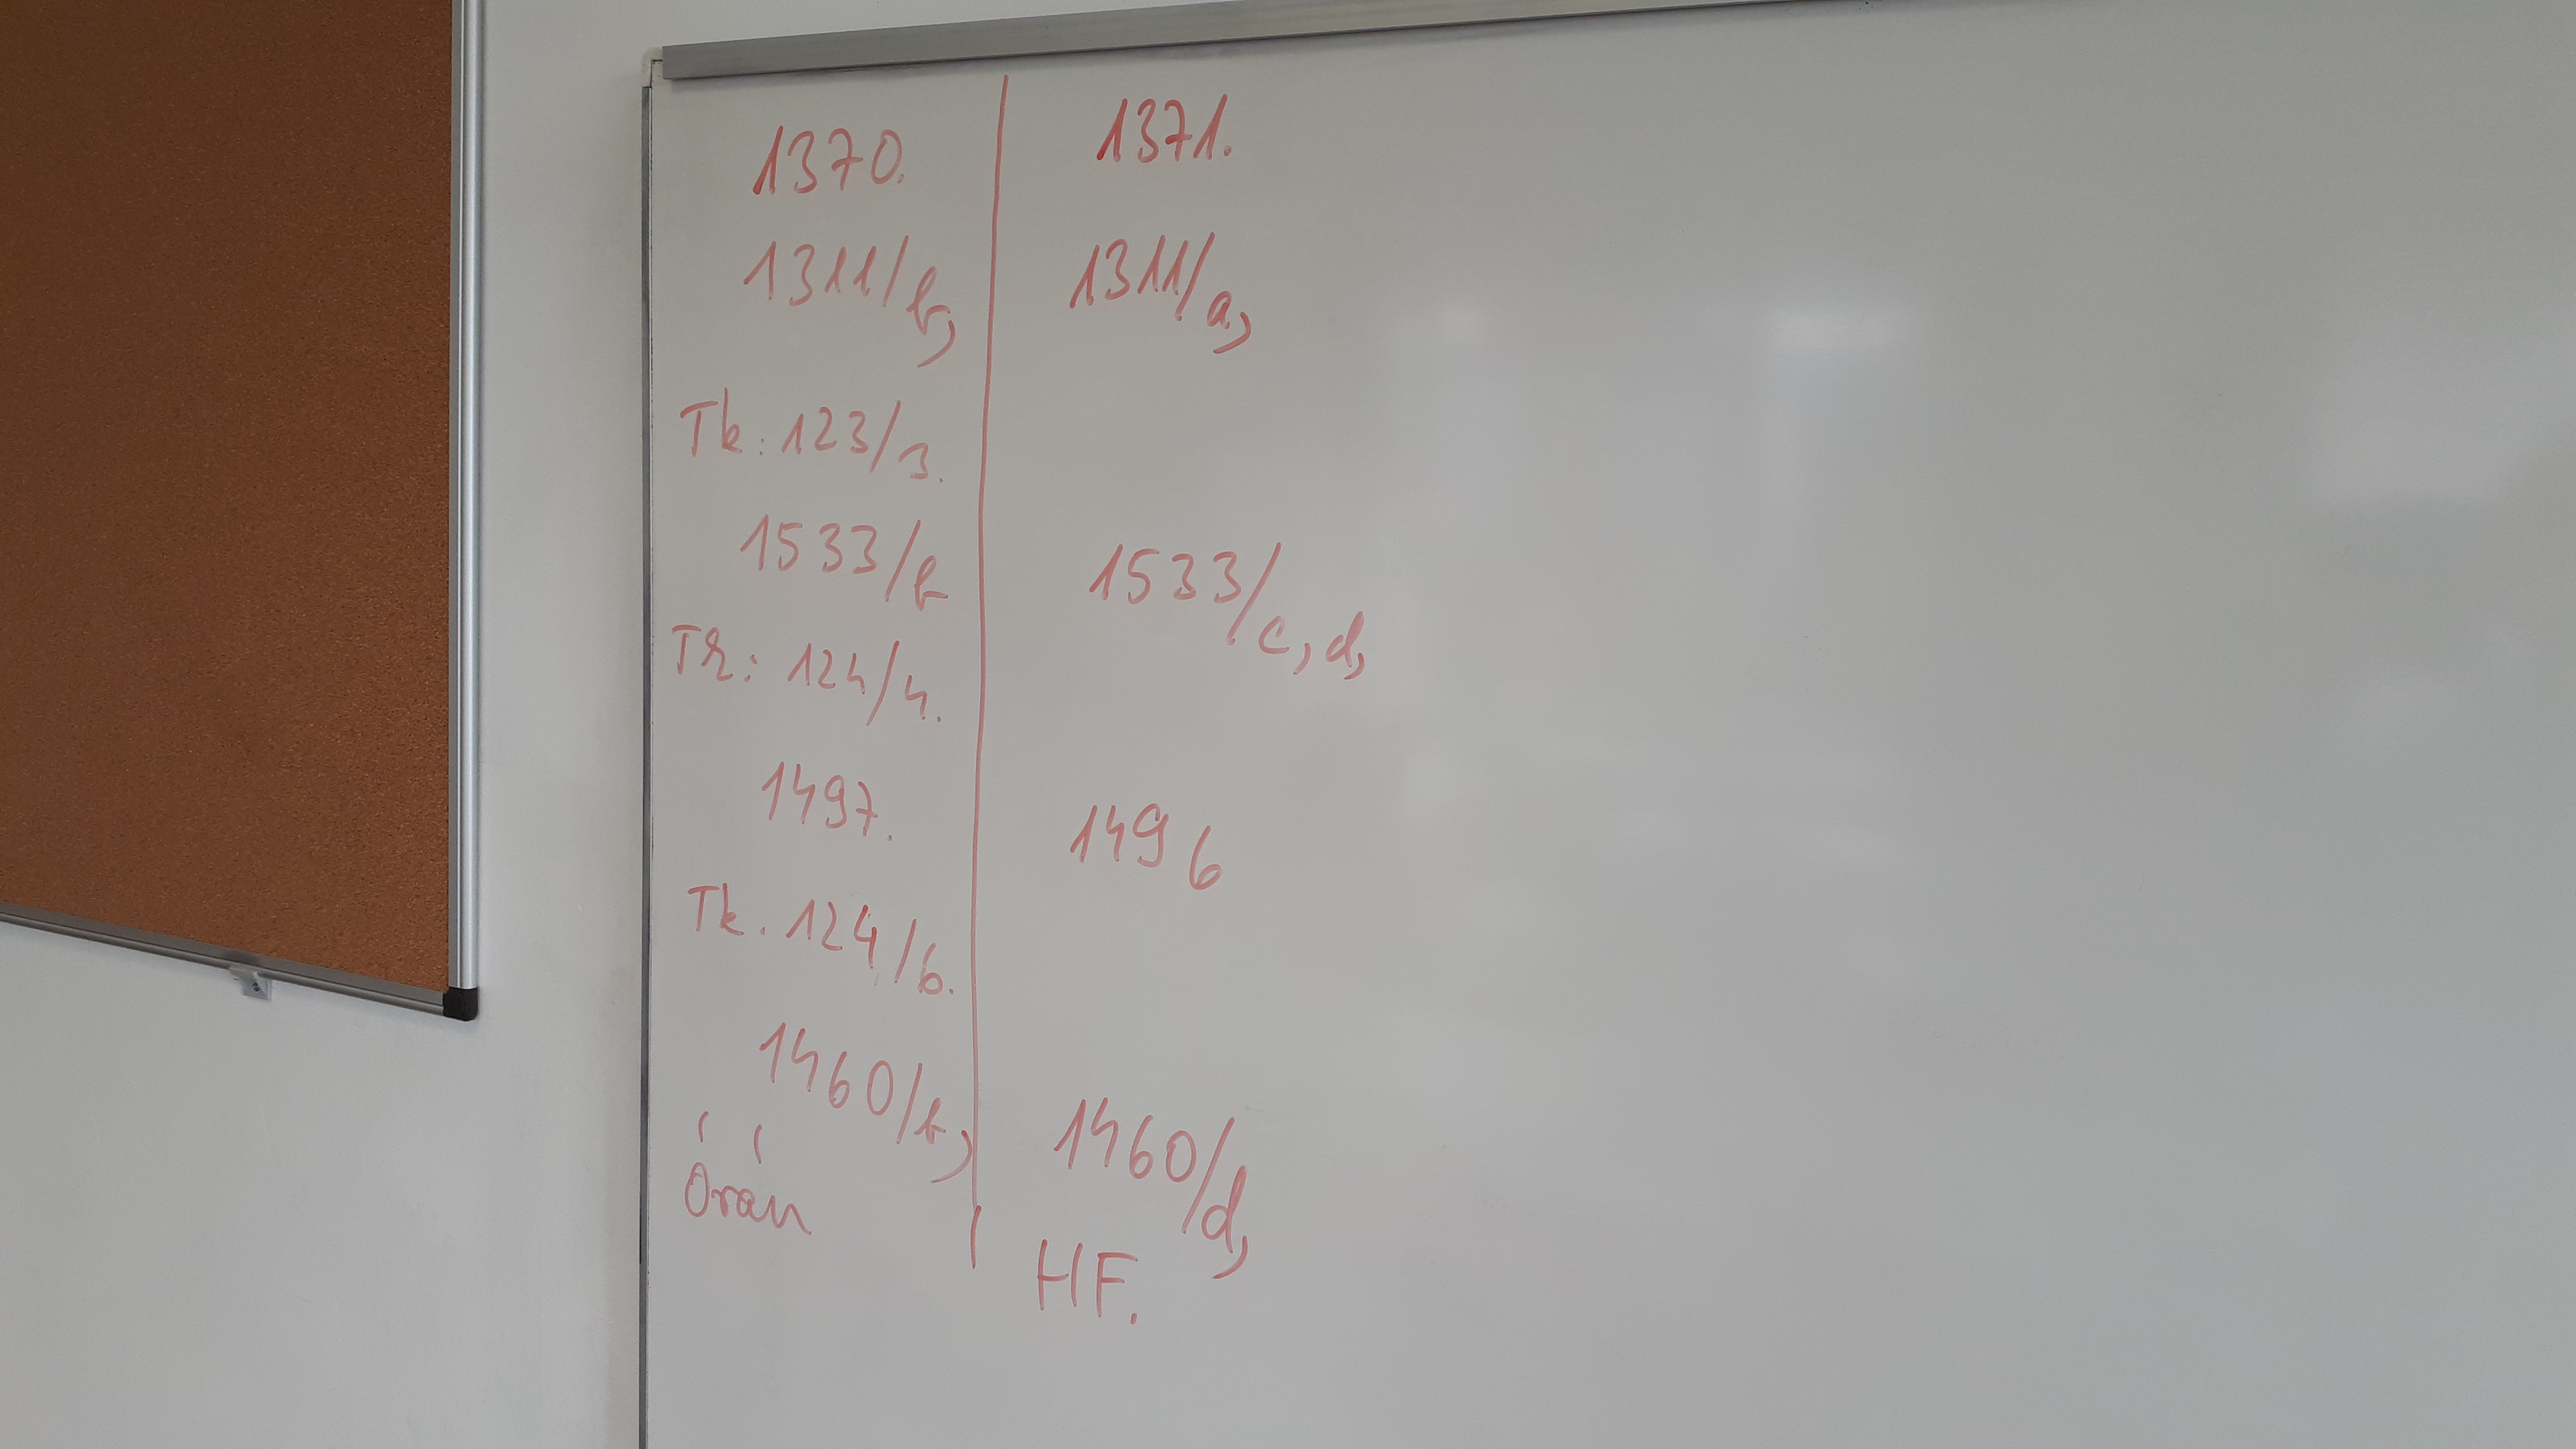 1370.
1311/b,
Tk: 123/3.
1533/b
Tk: 124/4.
1497.
Tk. 124/6.
1460/b,
Órán
1371.
1311/a,
1533/c, d,
1496
1460/d,
HF.